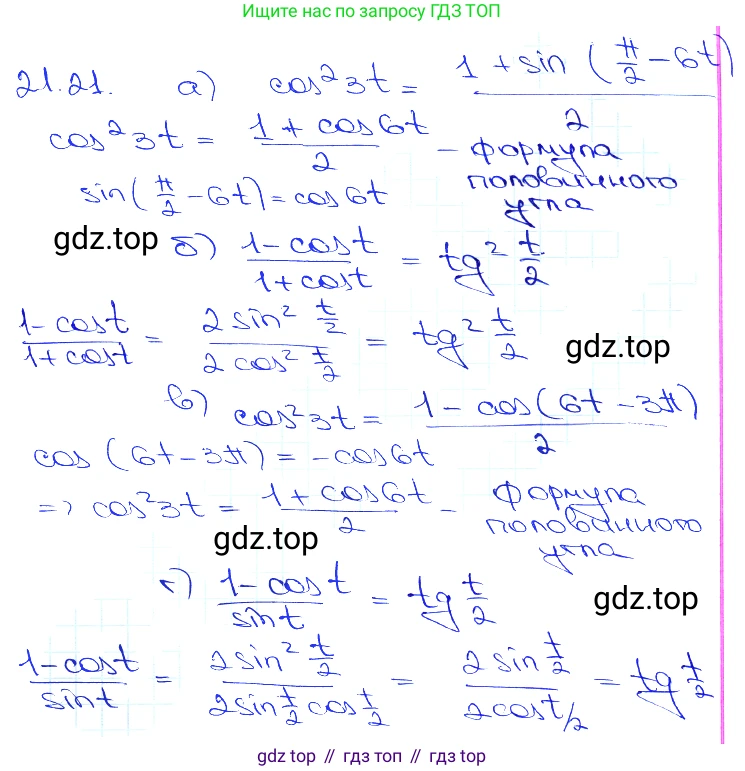 Ищите нас по запросу ГДЗ ТОП
21.21. а) cos²3t = (1 + sin(π/2 - 6t))/2
cos²3t = (1 + cos6t)/2 - формула половинного угла
sin(π/2 - 6t) = cos6t
gdz.top
б) (1 - cost)/(1 + cost) = tg² t/2
(1 - cost)/(1 + cost) = (2 sin² t/2)/(2 cos² t/2) = tg² t/2
gdz.top
в) cos²3t = (1 - cos(6t - 3π))/2
cos(6t - 3π) = -cos6t
=> cos²3t = (1 + cos6t)/2 - формула половинного угла
gdz.top
г) (1 - cost)/sint = tg t/2
gdz.top
(1 - cost)/sint = (2sin² t/2)/(2sin t/2 cos t/2) = (2sin t/2)/(2cos t/2) = tg t/2
gdz top // гдз топ // gdz top